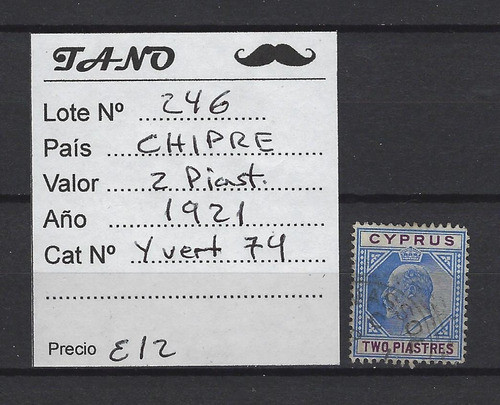 TANO
Lote Nº 246
País CHIPRE
Valor 2 Piast.
Año 1921
Cat Nº Yvert 74
Precio £12
CYPRUS
TWO PIASTRES